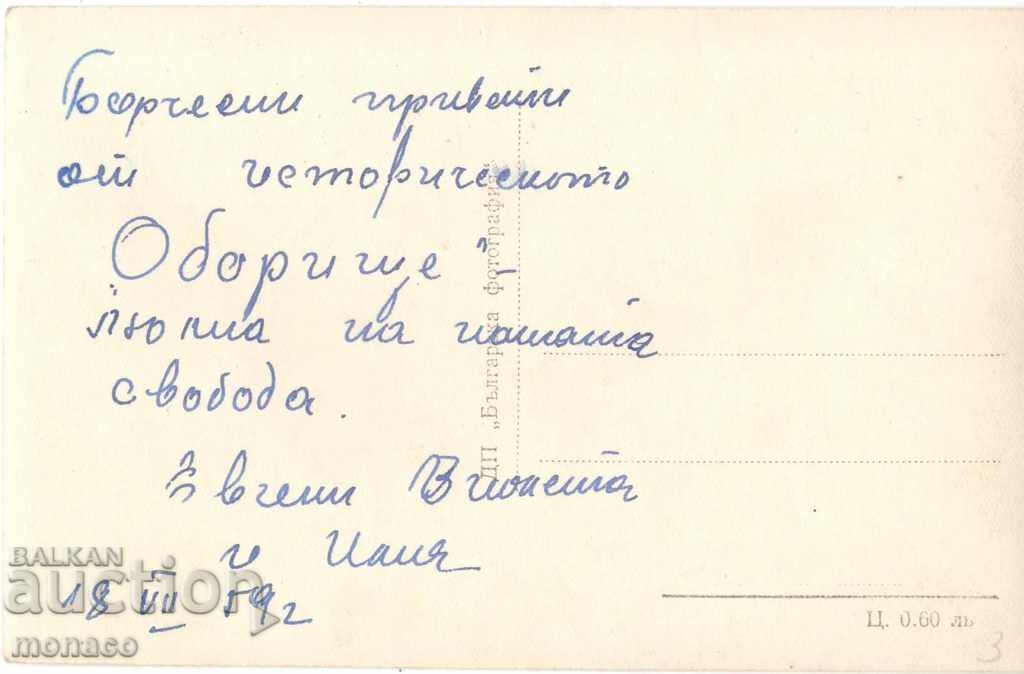 Борчески привети
от историческото
Оборище
люлка на нашата
свобода.
Евгени Виолета
и Илия
18 VII 59 г
ДП „Българска фотография"
Ц. 0.60 лв
3
BALKAN
auction
monaco